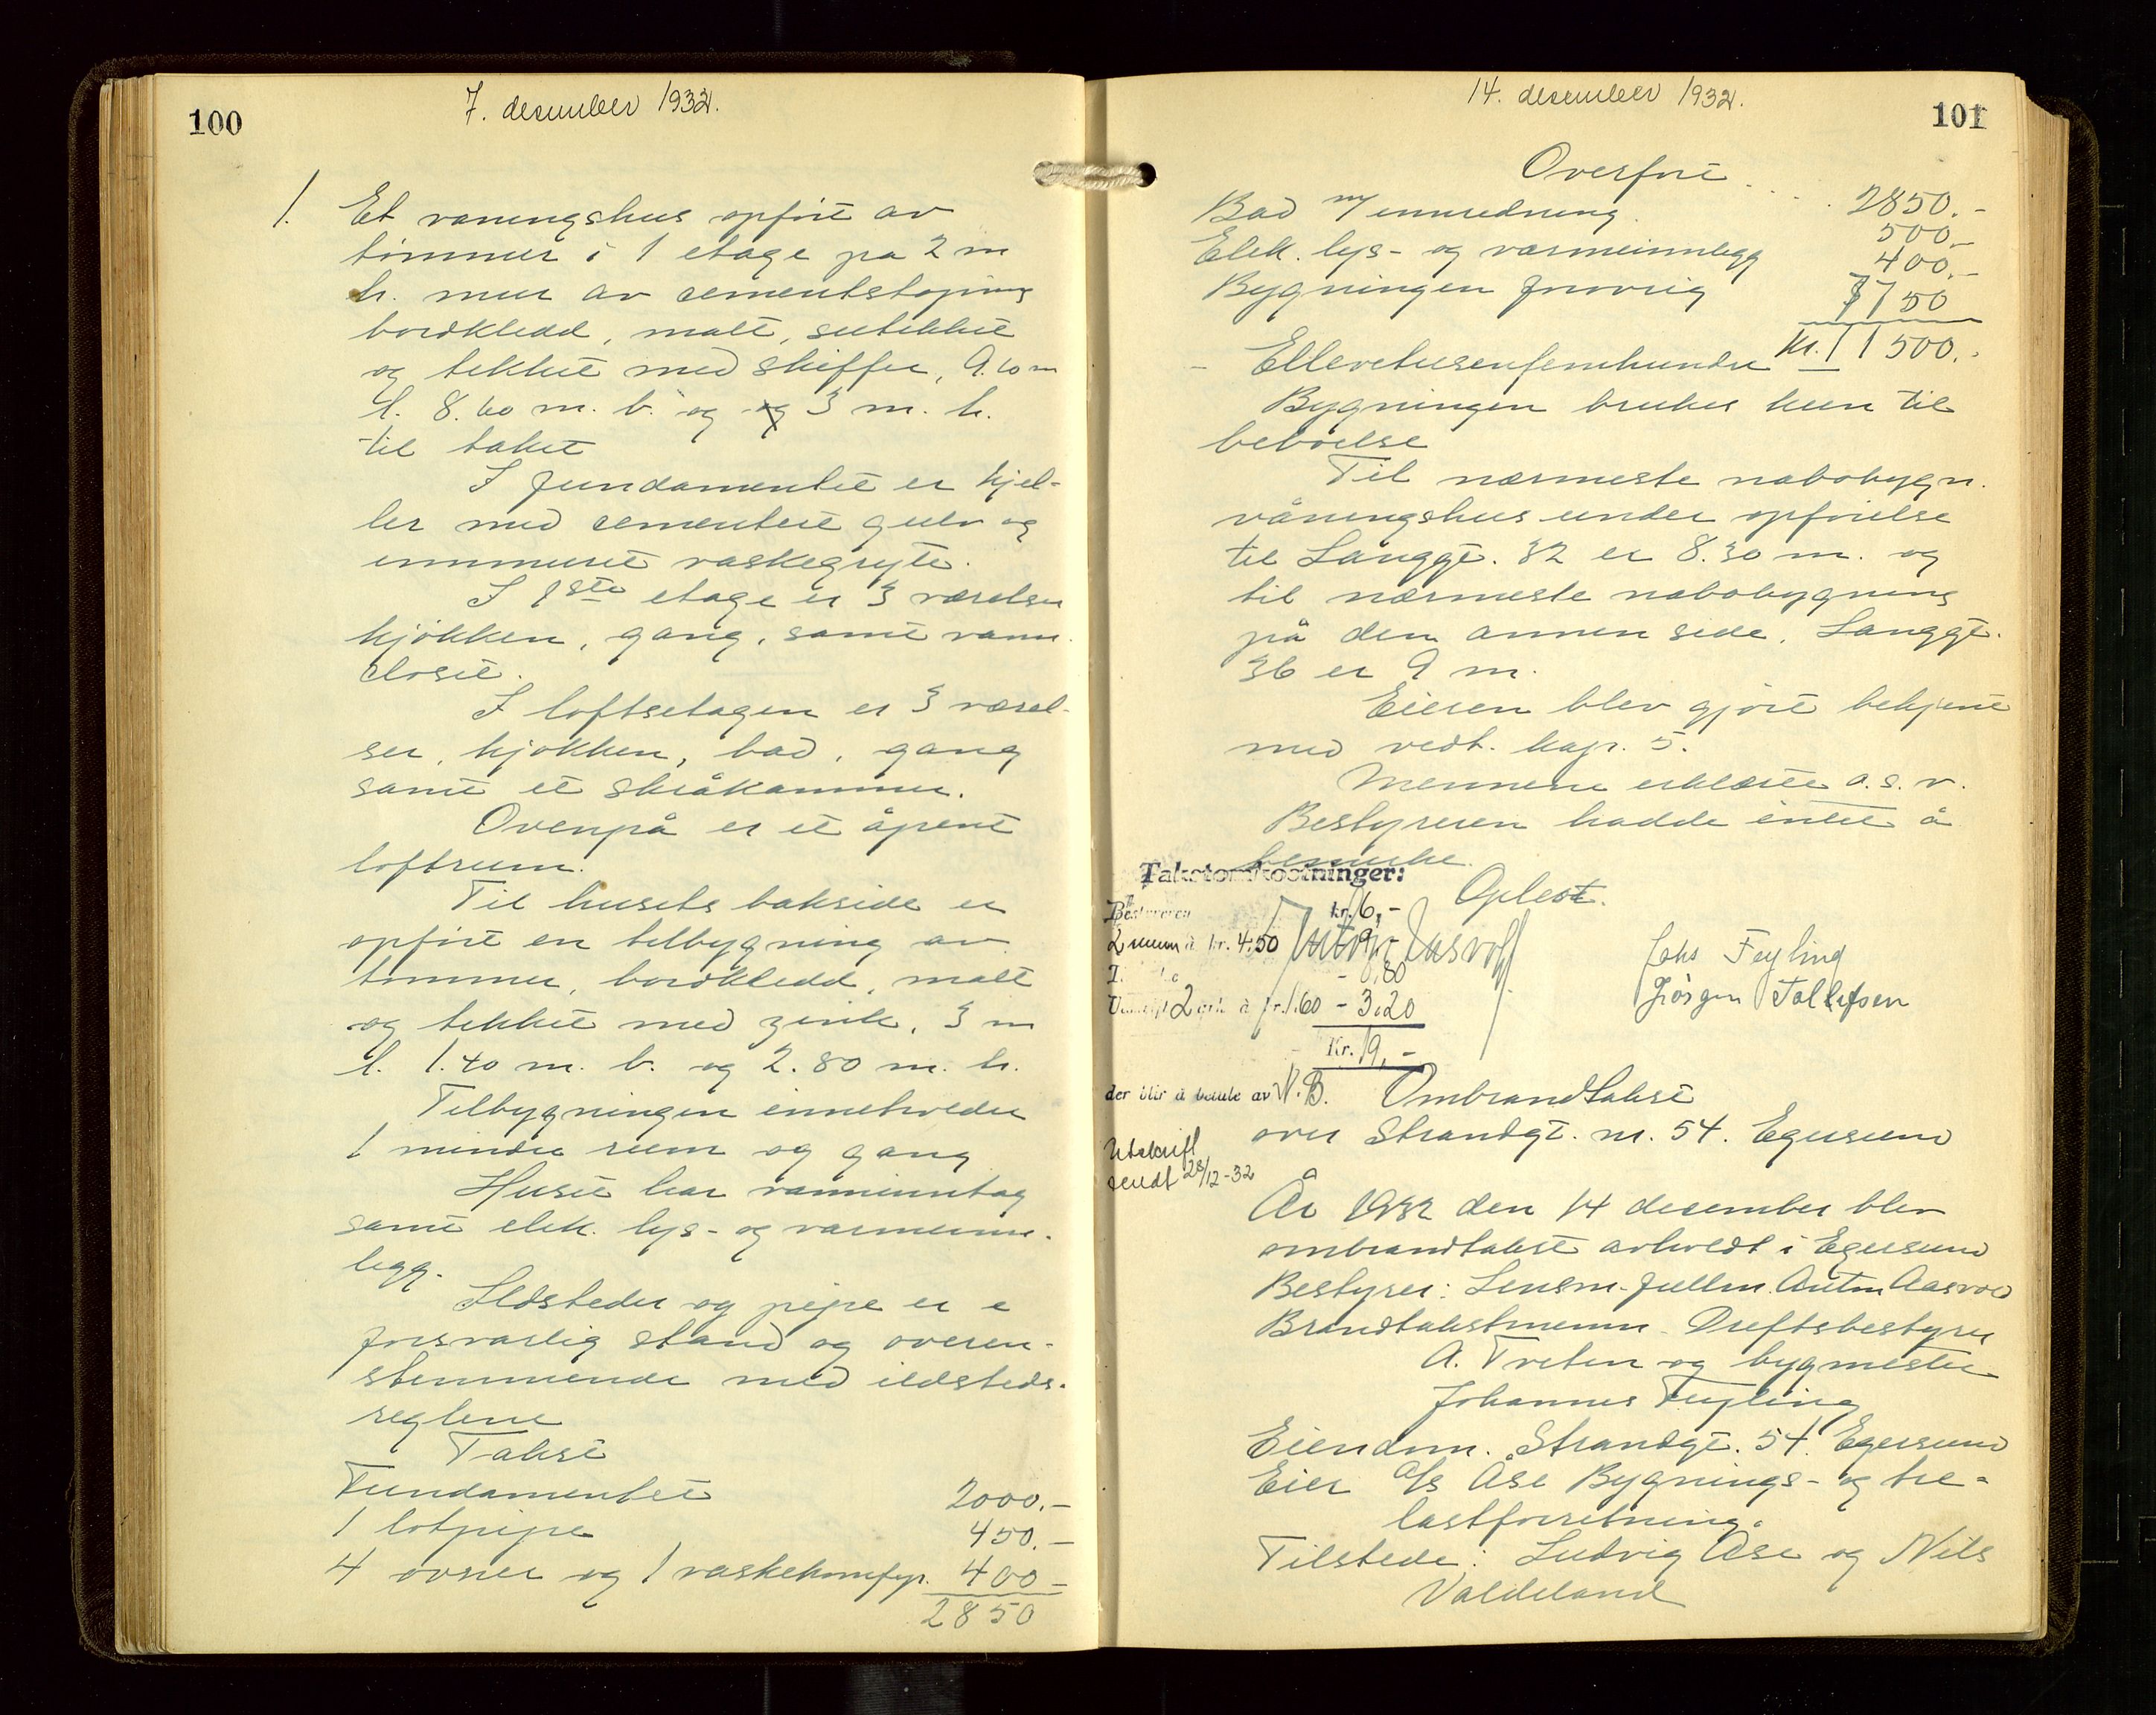 100
7. desember 1932.
1. Et våningshus opført av
tømmer i 1 etage på 2 m
h. mur av cementstøpning
bordkledd, malt, sutekket
og tekket med skiffer, 9.60 m
l. 8.60 m. b. og og 3 m. h.
til taket
I fundamentet er kjel-
ler med cementert gulv og
innmuret vaskegryte.
I 1ste etage er 3 værelser
kjøkken, gang, samt vann-
closet.
I loftsetagen er 3 værel-
ser, kjøkken, bad, gang
samt et skråkammer.
Ovenpå er et åpent
loftrum.
Til husets bakside er
opført en tilbygning av
tømmer, bordkledd, malt
og tekket med zink, 3 m
l. 1.40 m. b. og 2.80 m. h.
Tilbygningen inneholder
1 mindre rum og gang
Huset har vanninntag
samt elek. lys- og varmeinn-
legg.
Ildsteder og pipe er i
forsvarlig stand og overen-
stemmende med ildsteds-
reglene
Takst
Fundamentet 2000.-
1 løtpipe 450.-
4 ovner og 1 vaskekomfyr. 400-
2850
14. desember 1932.
101
Overført . . . 2850.-
Bad m/ innredning. 500.-
Elek. lys- og varmeinnlegg 400.-
Bygningen forøvrig 7750
Kr. 11500.-
- Ellevetusenfemhundre
Bygningen brukes kun til
beboelse
Til nærmeste nabobygn.
våningshus under opførelse
til Langgt. 32 er 8.30 m. og
til nærmeste nabobygning
på den annen side, Langgt.
36 er 9 m.
Eieren blev gjort bekjent
med vedt. kap. 5.
Mennene erklærte a. s. v.
Bestyreren hadde intet å
bemerke.
Takstomkostninger: Oplest.
Bestyreren kr. 6,-
2 menn à kr. 4.50 - 9,-
Anton Aasvold
Johs Feyling
- 0,80
Jørgen Tollefsen
Utskrift 2 ark à kr. 1.60 - 3.20
Kr. 19,-
der blir å betale av N. B.
Ombrandtakst
over Strandgt. nr. 54. Egersund
Utskrift
sendt 28/12-32
År 1932 den 14 desember blev
ombrandtakst avholdt i Egersund
Bestyrer: Lensm. fullm. Anton Aasvold
Brandtakstmenn. Driftsbestyrer
A. Treten og bygmester
Johannes Feyling
Eiendom. Strandgt. 54. Egersund
Eier A/s Åse Bygnings- og tre-
lastforretning.
Tilstede: Ludvig Åse og Nils
Valdeland